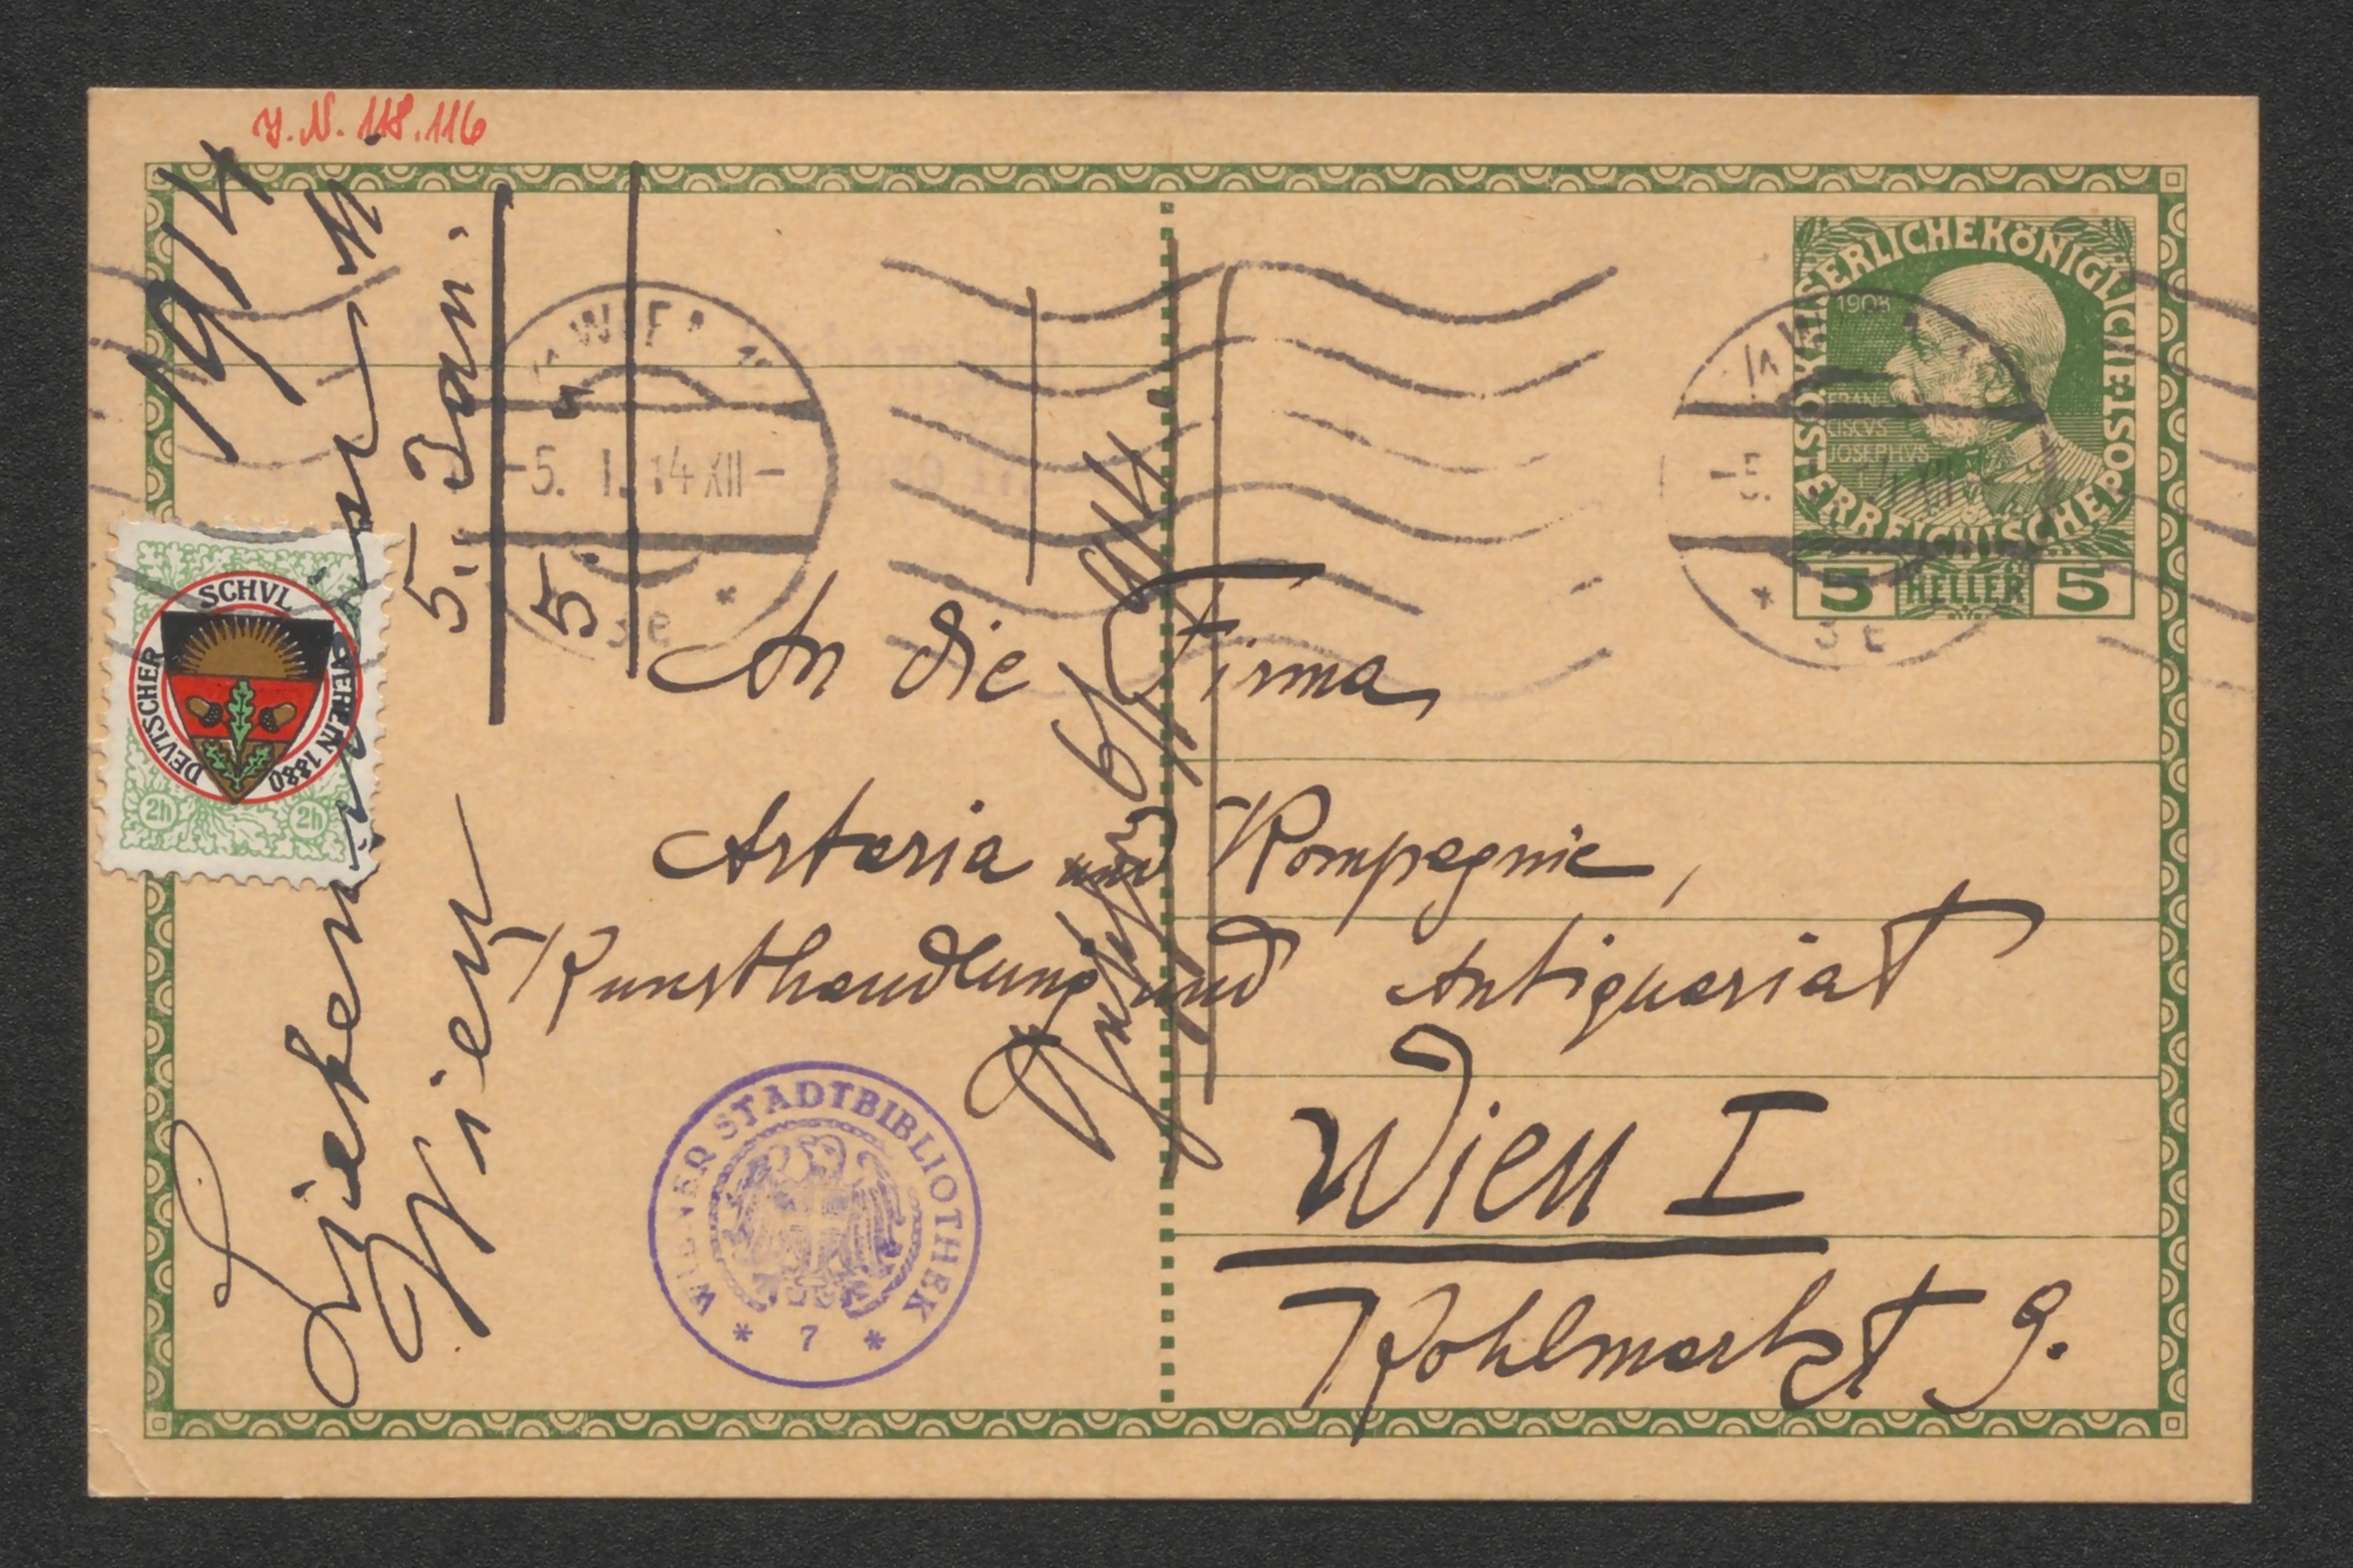 J.N. 118.116
1914
5. Jan.
5.
Wien
WIEN
5. I. 14 XII
3e
KAISERLICHE KÖNIGLICHE ÖSTERREICHISCHE POST
1908
FRAN
CISCVS
JOSEPHVS
5 HELLER 5
DEVTSCHER SCHVLVEREIN 1880
2h 2h
An die Firma
Artaria und Kompagnie,
Kunsthandlung und Antiquariat
Wien I
Kohlmarkt 9.
WIENER STADTBIBLIOTHEK
* 7 *